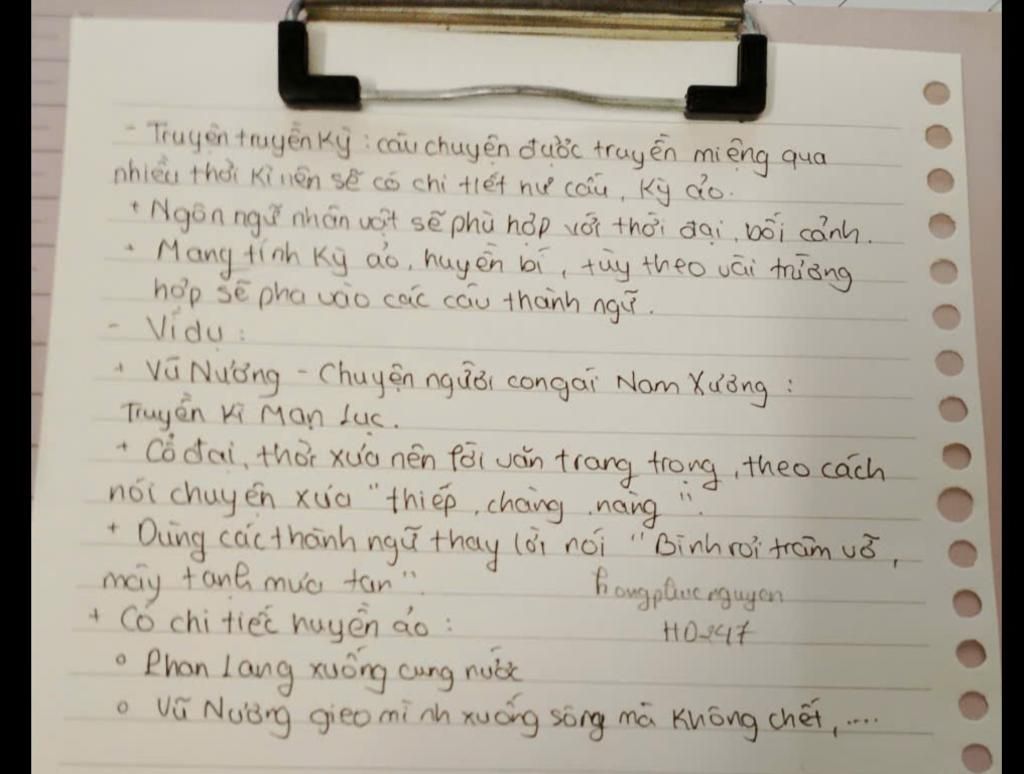 - Truyện truyền Kỳ : câu chuyện được truyền miệng qua
nhiều thời Kì nên sẽ có chi tiết hư cấu, Kỳ ảo.
+ Ngôn ngữ nhân vật sẽ phù hợp với thời đại, bối cảnh.
+ Mang tính Kỳ ảo, huyền bí, tùy theo vài trường
hợp sẽ pha vào các câu thành ngữ.
- Ví dụ :
+ Vũ Nương - Chuyện người con gái Nam Xương :
Truyền Kì Mạn Lục.
+ Cổ đại, thời xưa nên lời văn trang trọng, theo cách
nói chuyện xưa "thiếp, chàng, nàng".
+ Dùng các thành ngữ thay lời nói "Bình rơi trâm vỡ,
mây tạnh mưa tan".
hongphucnguyen
HD-247
+ Có chi tiếc huyền ảo :
o Phan Lang xuống cung nước
o Vũ Nương gieo mình xuống sông mà Không chết, ....